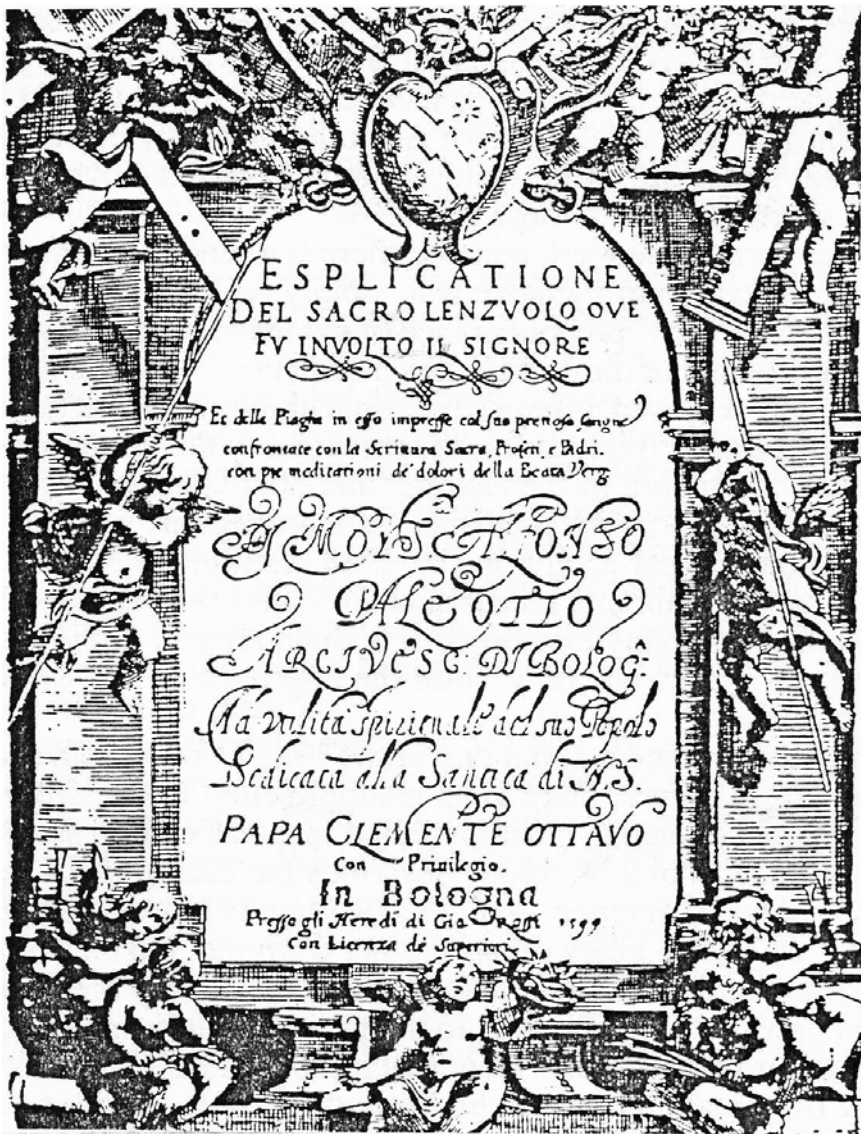 ESPLICATIONE
DEL SACRO LENZVOLO OVE
FV INVOLTO IL SIGNORE
Et delle Piaghe in esso impresse col suo pretioso sangue
confrontate con la Scrittura Sacra, Profeti, e Padri.
con pie meditationi de' dolori della Beata Verg:
DI MONS ALFONSO
PALEOTTO
ARCIVESC. DI BOLOG:
Ad vtilità spirituale del suo Popolo
Dedicata alla Santità di N.S.
PAPA CLEMENTE OTTAVO
Con Priuilegio.
In Bologna
Presso gli Heredi di Gio Rossi 1599
Con Licenza de Superiori